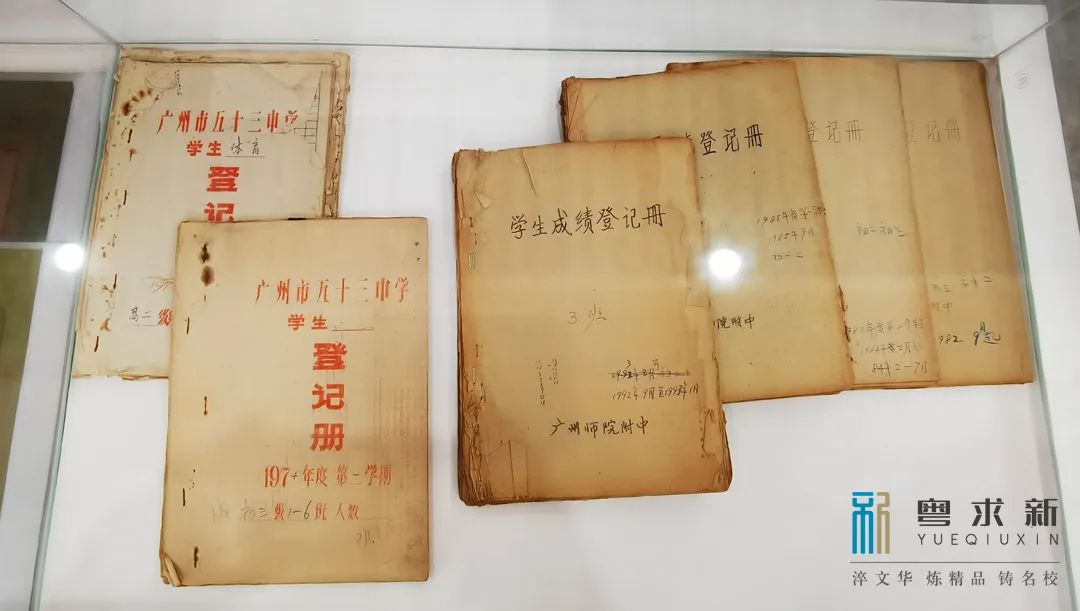 广州市五十三中学
学生 体育
登
记
高二 级
广州市五十三中学
学生
登
记
册
197 年度 第一学期
初三级1-6班人数
学生成绩登记册
3班
1992年9月至1993年1月
广州师院附中
登记册
1985年9月
初一二
院附中
登记册
初二初三
84年2-7月
登记册
附中
982 9月起
粤求新
YUEQIUXIN
淬文华 炼精品 铸名校